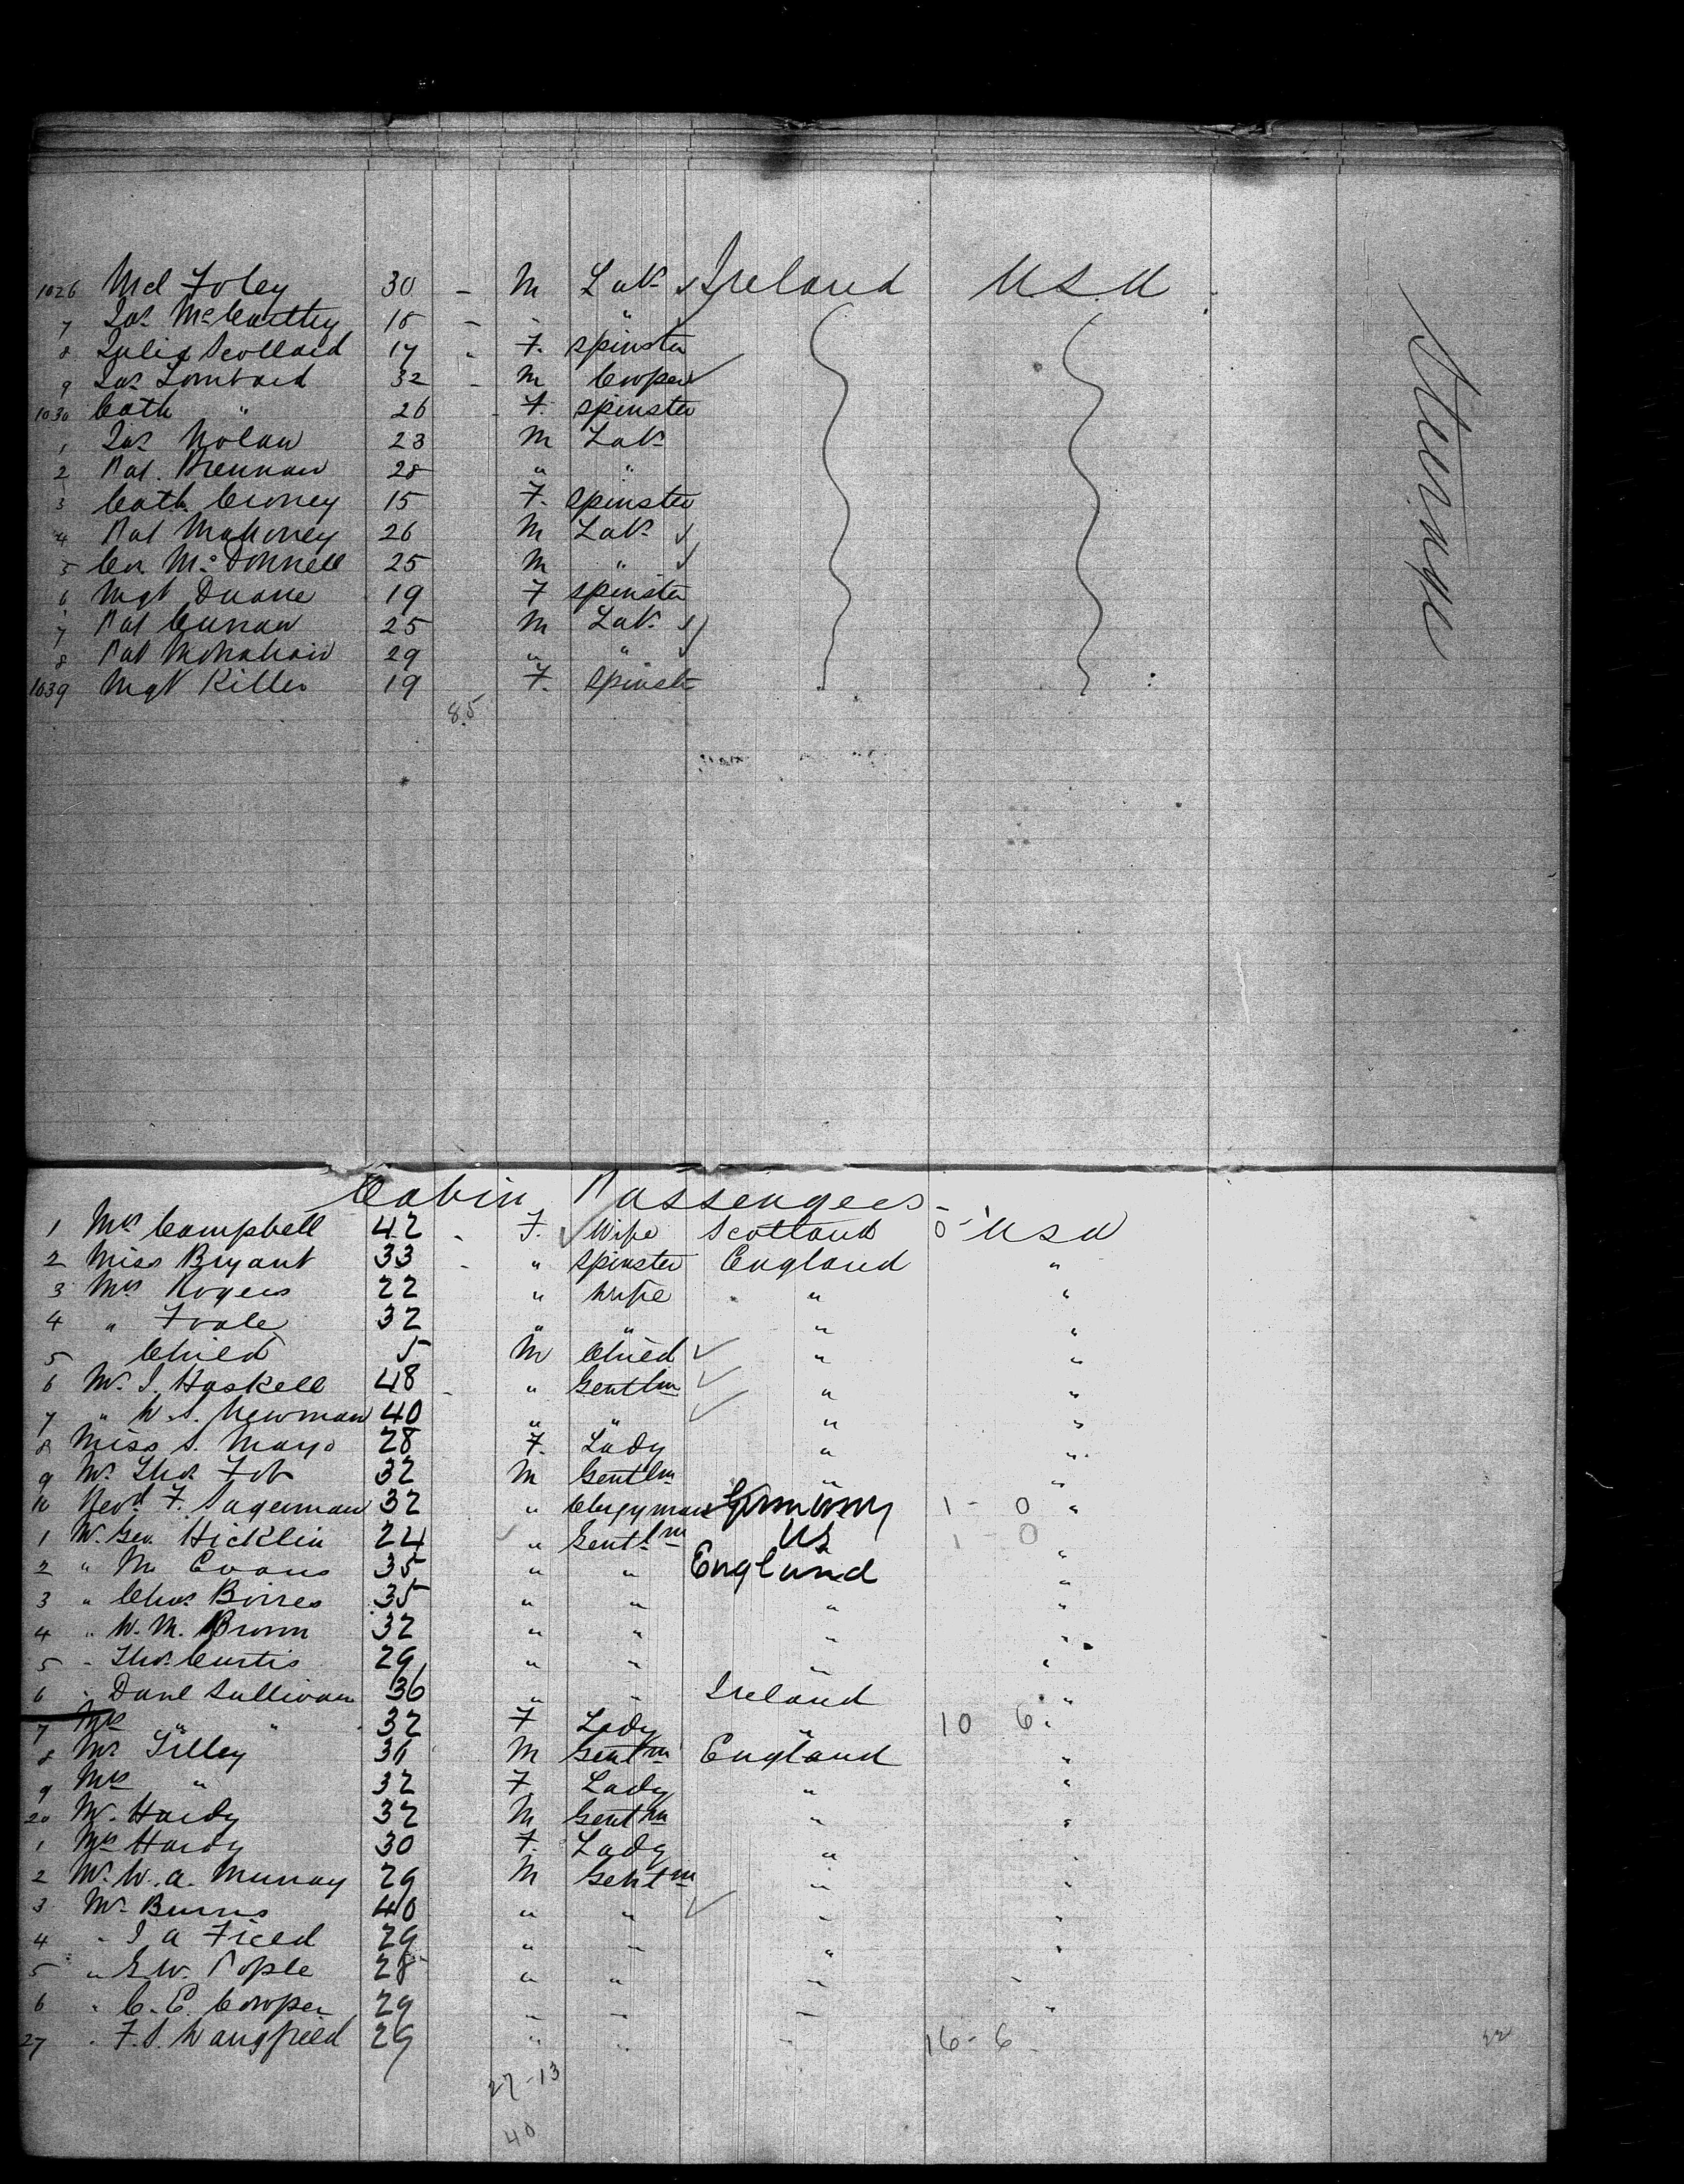 1026 Mcl Foley 30 - M Labr Ireland U.S.A
7 Jas McCarthy 18 - - "
8 Julia Scollard 17 " F. Spinster
9 Jas Lombard 32 - M Cooper
1030 Cath " 26 F. Spinster
1 Jas Nolan 23 M Labr
2 Pat. Brennan 28 " "
3 Cath. 15 F. Spinster
4 Pat Mahoney 26 M Labr
5 McDonnell 25 M "
6 Mgt Duane 19 F Spinster
7 Pat Curran 25 M Labr
8 Pat 29 " "
1039 Mgt 19 F. Spinst
85
Steerage
Cabin Passengers
1 Mrs Campbell 42 F. Wife Scotland 0 - 1 USA
2 Miss Bryant 33 " Spinster England "
3 Mrs Rogers 22 " Wife " "
4 " 32 " " " "
5 Child 5 M Child " "
6 Mr. J. Haskell 48 " Gentlm " "
7 " W.S. Newman 40 " " " "
8 Miss S. Mayo 28 F. Lady " "
9 Mr. Thos 32 M Gentlm " "
10 Revd F. Sagerman 32 " Clergyman Germany 1 - 0 "
1 Mr. Geo. Hicklin 24 " Gentlm US 1 - 0
2 " M Evans 35 " " England "
3 " Chas 35 " " " "
4 " W. M. Brown 32 " " " "
5 " Thos. Curtis 29 " " " "
6 " Danl Sullivan 36 " " Ireland "
7 Mrs " " 32 F Lady " 10 6 "
8 Mr Tilley 36 M Gentm England "
9 Mrs " 32 F. Lady " "
20 Mr. Hardy 32 M Gentm " "
1 Mrs Hardy 30 F. Lady "
2 Mr. W. A. Murray 29 M Gentm " "
3 Mr. Burns 40 " " " "
4 " J A 29 " " " "
5 " G.W. Pople 28 " " " "
6 " C. E. Cowper 29 " " " "
27 " F. S. 29 " " " 16 - 6
27 - 13
40